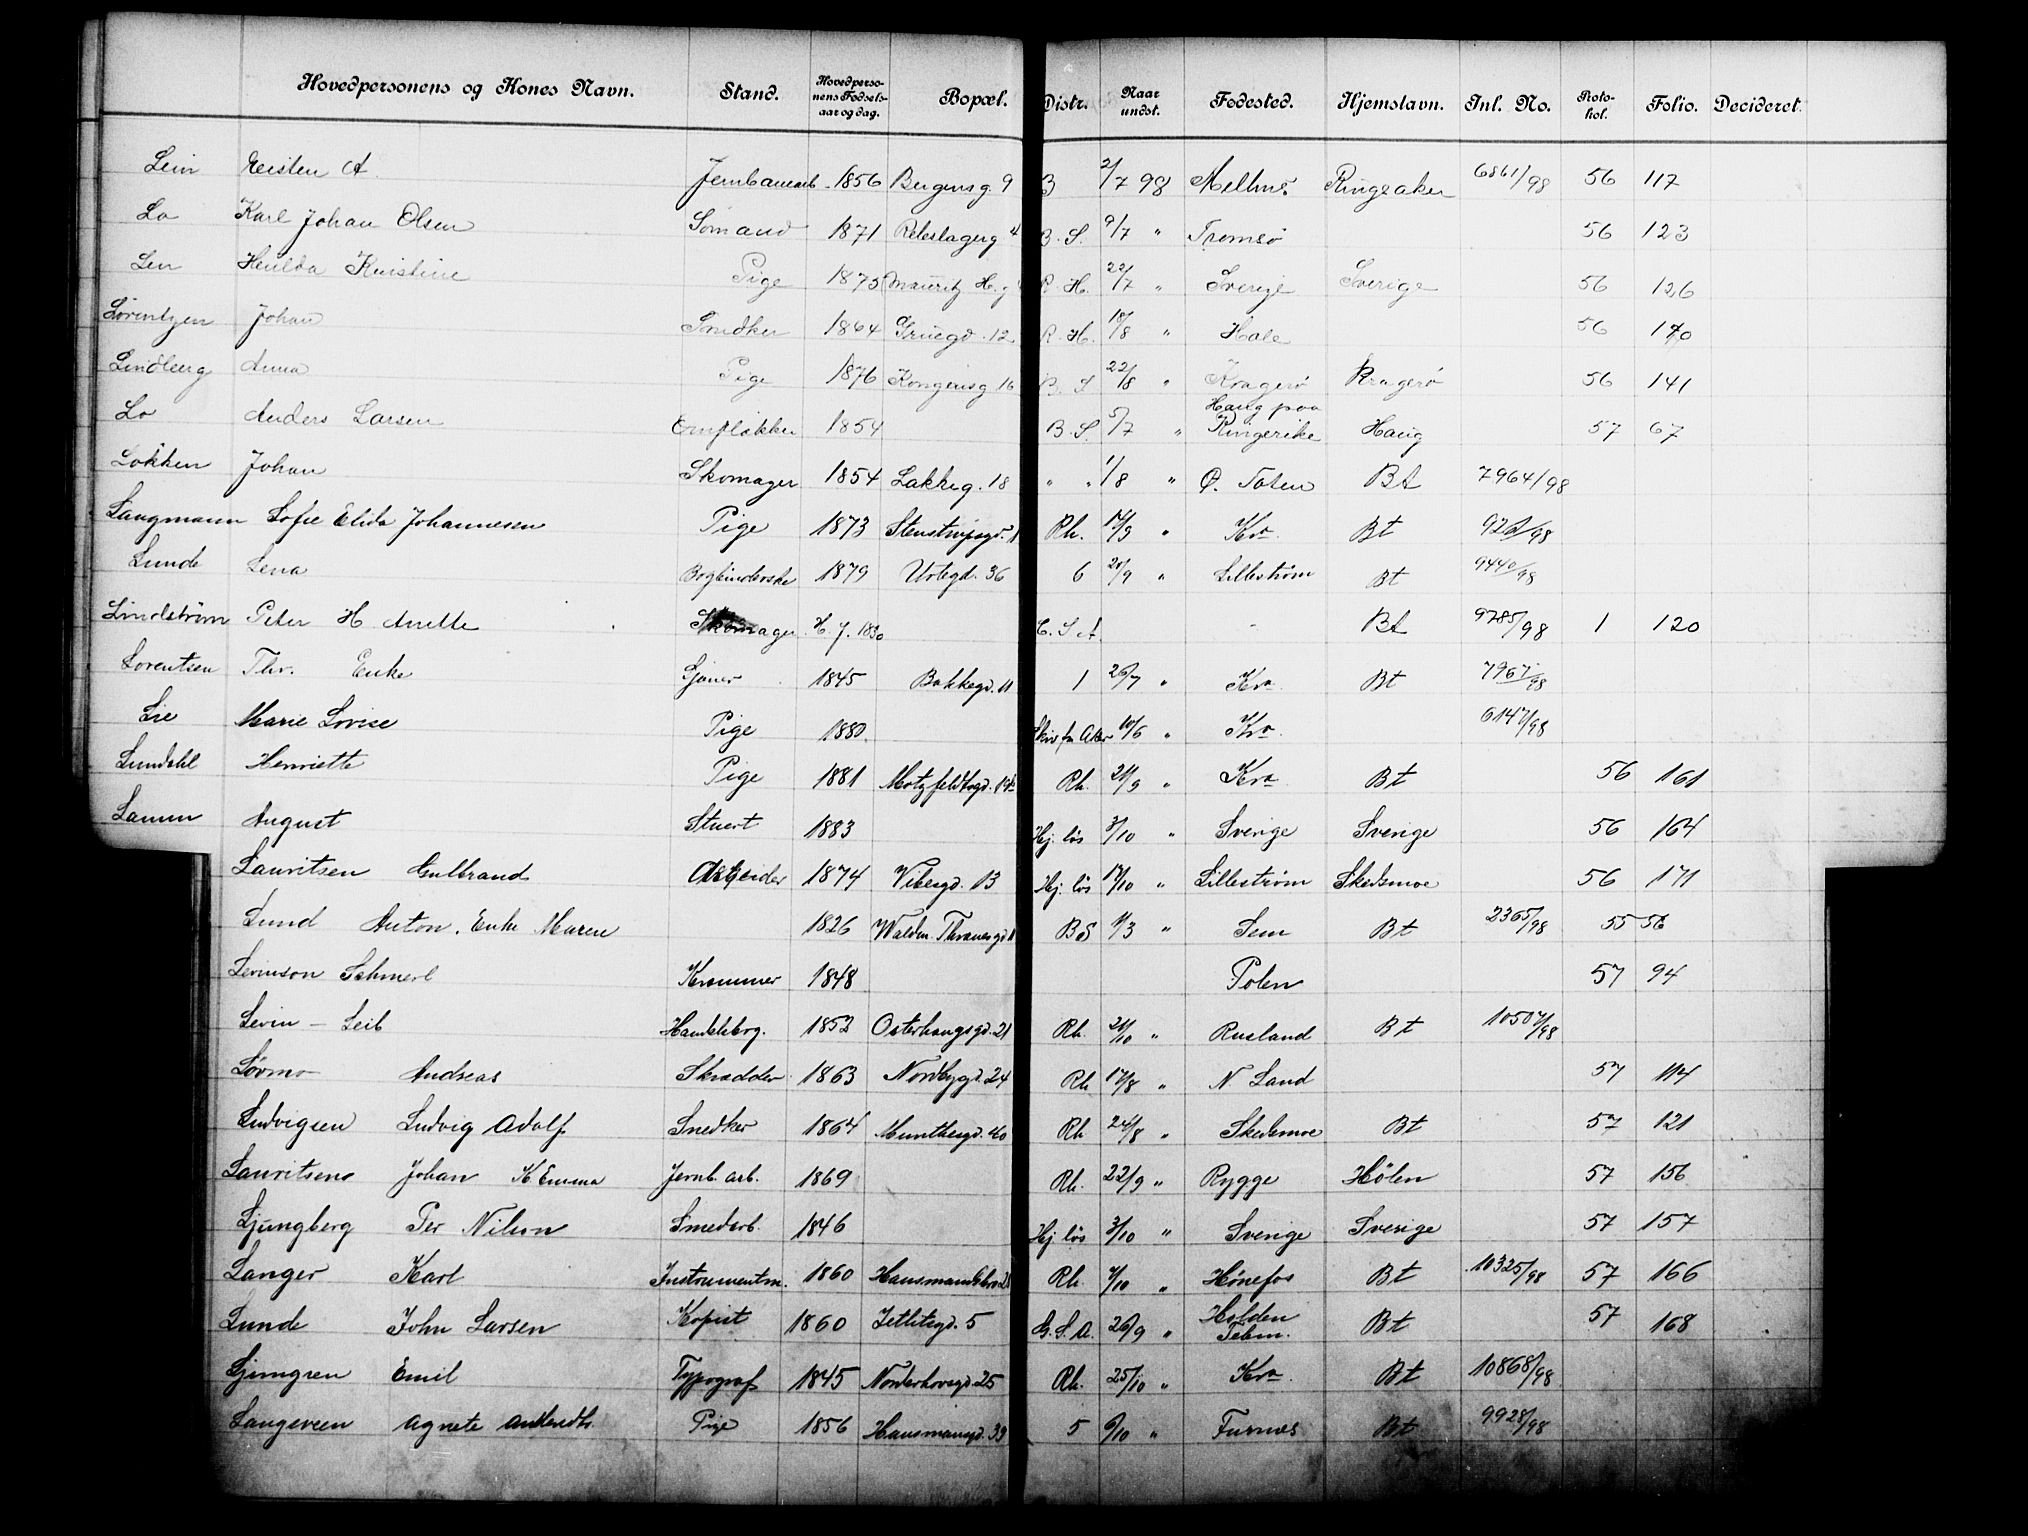 Hovedpersonens og Kones Navn. Stand. Hovedperso-nens Fødsels-aar og dag. Bopæl. Distr. Naar undst. Fødested. Hjemstavn. Inl. No. Proto-kol. Folio. Decideret.
Lein Eeisten A. Jernbanearb 1856 Bergensg 9 B 2/7 98 Melhus Ringsaker 6861/98 56 117
Lo Karl Johan Olsen Sømand 1871 Rebslagerg 4 B. S. 9/7 " Tromsø 56 123
Lien Hulda Kristine Pige 1875 Mauritz H. g R. H. 22/7 " Sverige Sverige 56 126
Lorentzen Johan Snedker 1864 Gruegd. 12 R. H. 18/8 " Hole 56 140
Lindberg Anna Pige 1876 Kongensg 16 B. S 22/8 " Kragerø Kragerø 56 141
Lo Anders Larsen 1854 B. S. 5/7 " Haug paa Ringerike Haug 57 67
Løkken Johan Skomager 1854 Lakkeg. 18 " " 1/8 " Ø. Toten Bt 7964/98
Langmann Sofie Elida Johannesen Pige 1873 Stenstrupsgd. 1 Rh. 14/9 " Kra. Bt
Lunde Lena Bogbinderske 1879 Urtegd. 36 6 20/9 " Lillestrøm Bt 9440/98
Lindstrøm Peter H Anette Skomager H. f. 1830 C. S A. Bt 9785/98 1 120
Lorentsen Thv. Enke 1845 Bakkegd. 11 1 26/7 " Kra. Bt 7967/98
Lie Marie Lovise Pige 1880 Skiv fra Aker 10/6 " Kra. 6147/98
Lundahl Henriette Pige 1881 Motzfeldtsgd. 19b Rh. 21/9 " Kra. Bt 56 161
Lamm August Stuert 1883 Hj. løs 3/10 " Sverige Sverige 56 164
Lauritsen Gulbrand Arbeider 1874 Vibesgd. 13 Hj. løs 17/10 " Lillestrøm Skedsmoe 56 171
Lund Anton. Enke Maren 1826 Waldm. Thranesgd 11 BS 11/3 " Sem Bt 2365/98 55 56
Levinson Schmerl Kræmmer 1848 Polen 57 94
Levin - Leib Handelsborg. 1852 Osterhausgd. 21 Rh. 21/10 " Rusland Bt 10507/98
Løvmo Andreas Skrædder 1863 Nordbygd. 24 Rh 17/8 " N Land 57 114
Ludvigsen Ludvig Adolf Snedker 1864 Munthesgd. 40 Rh 24/8 " Skedsmoe Bt 57 121
Lauritsen Johan K Emma Jernb. arb. 1869 Rh. 22/9 " Rygge Hølen 57 156
Ljungberg Per Nilson Smedarb. 1846 Hj. løs 3/10 " Sverige Sverige 57 157
Langer Karl Instrumentm. 1860 Rh. 4/10 " Hønefos Bt 10325/98 57 166
Lunde John Larsen Kopist 1860 Jetlitsgd. 5 G. S. A. 26/9 " Holden Telem. Bt 57 168
Ljungren Emil Typograf 1845 Norderhovsgd. 25 Rh. 25/10 " Kra. Bt 10868/98
Langeveen Agnete Pige 1856 Hausmansgd. 33 5 6/10 " Furnes Bt 9928/98